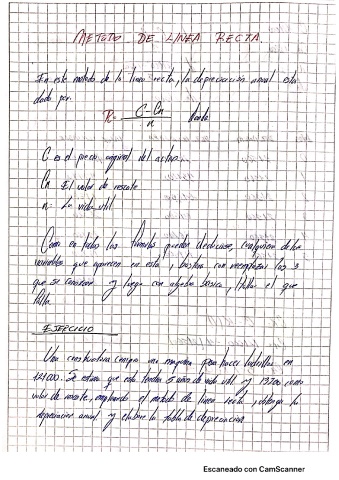 METODO DE LINEA RECTA.
En este metodo de la linea recta, la depreciación anual esta
dado por:
R = C - Cn / n donde
C es el precio original del activo
Cn El valor de rescate
n: La vida util
Como en todas las formulas pueden deducirse, cualquiera de las
variables que aparecen en esta, bastara con reemplazar las 3
que se conocen y luego con algebra basica, hallar el que
falta.
EJERCICIO
Una constructora compra una maquina para hacer ladrillos en
Se estima que esta tendra 5 años de vida util y como
valor de rescate, empleando el metodo de linea recta, obtenga la
depreciacion anual y elabore la tabla de depreciacion
Escaneado con CamScanner